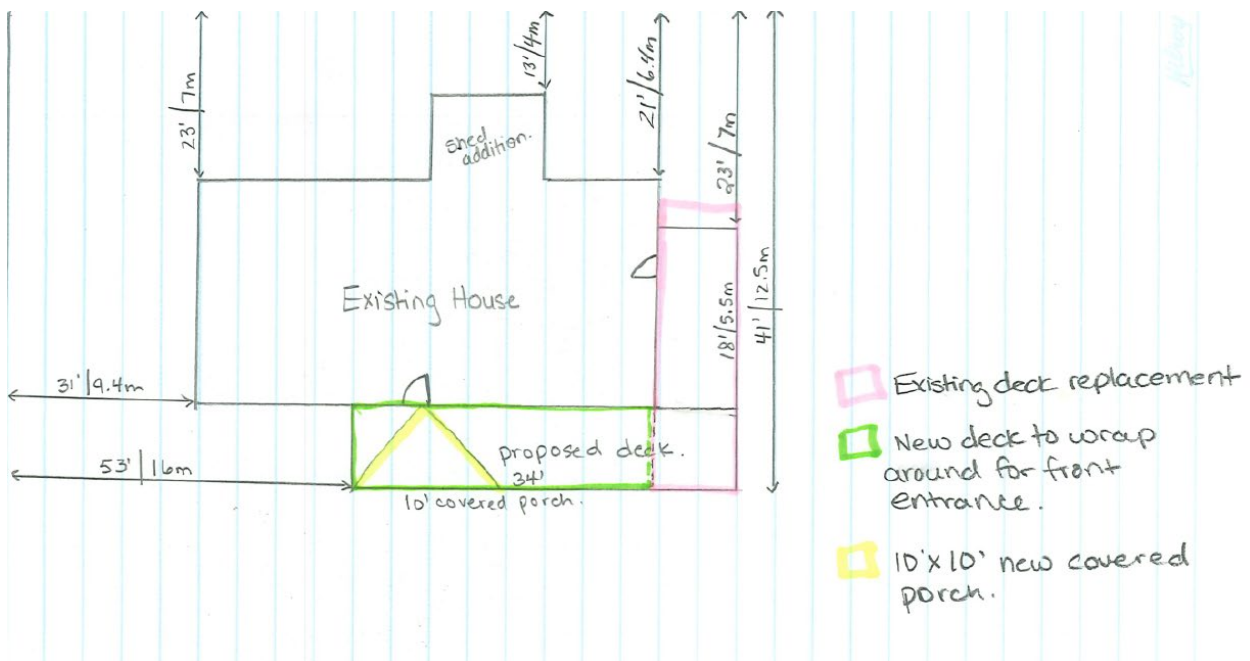 23' / 7m
13'/4m
21' / 6.4m
23' / 7m
shed
addition.
Existing House
18'/5.5m
41' / 12.5m
31' / 9.4m
53' / 16m
proposed deck.
34'
10' covered porch.
Existing deck replacement
New deck to wrap
around for front
entrance.
10'x10' new covered
porch.